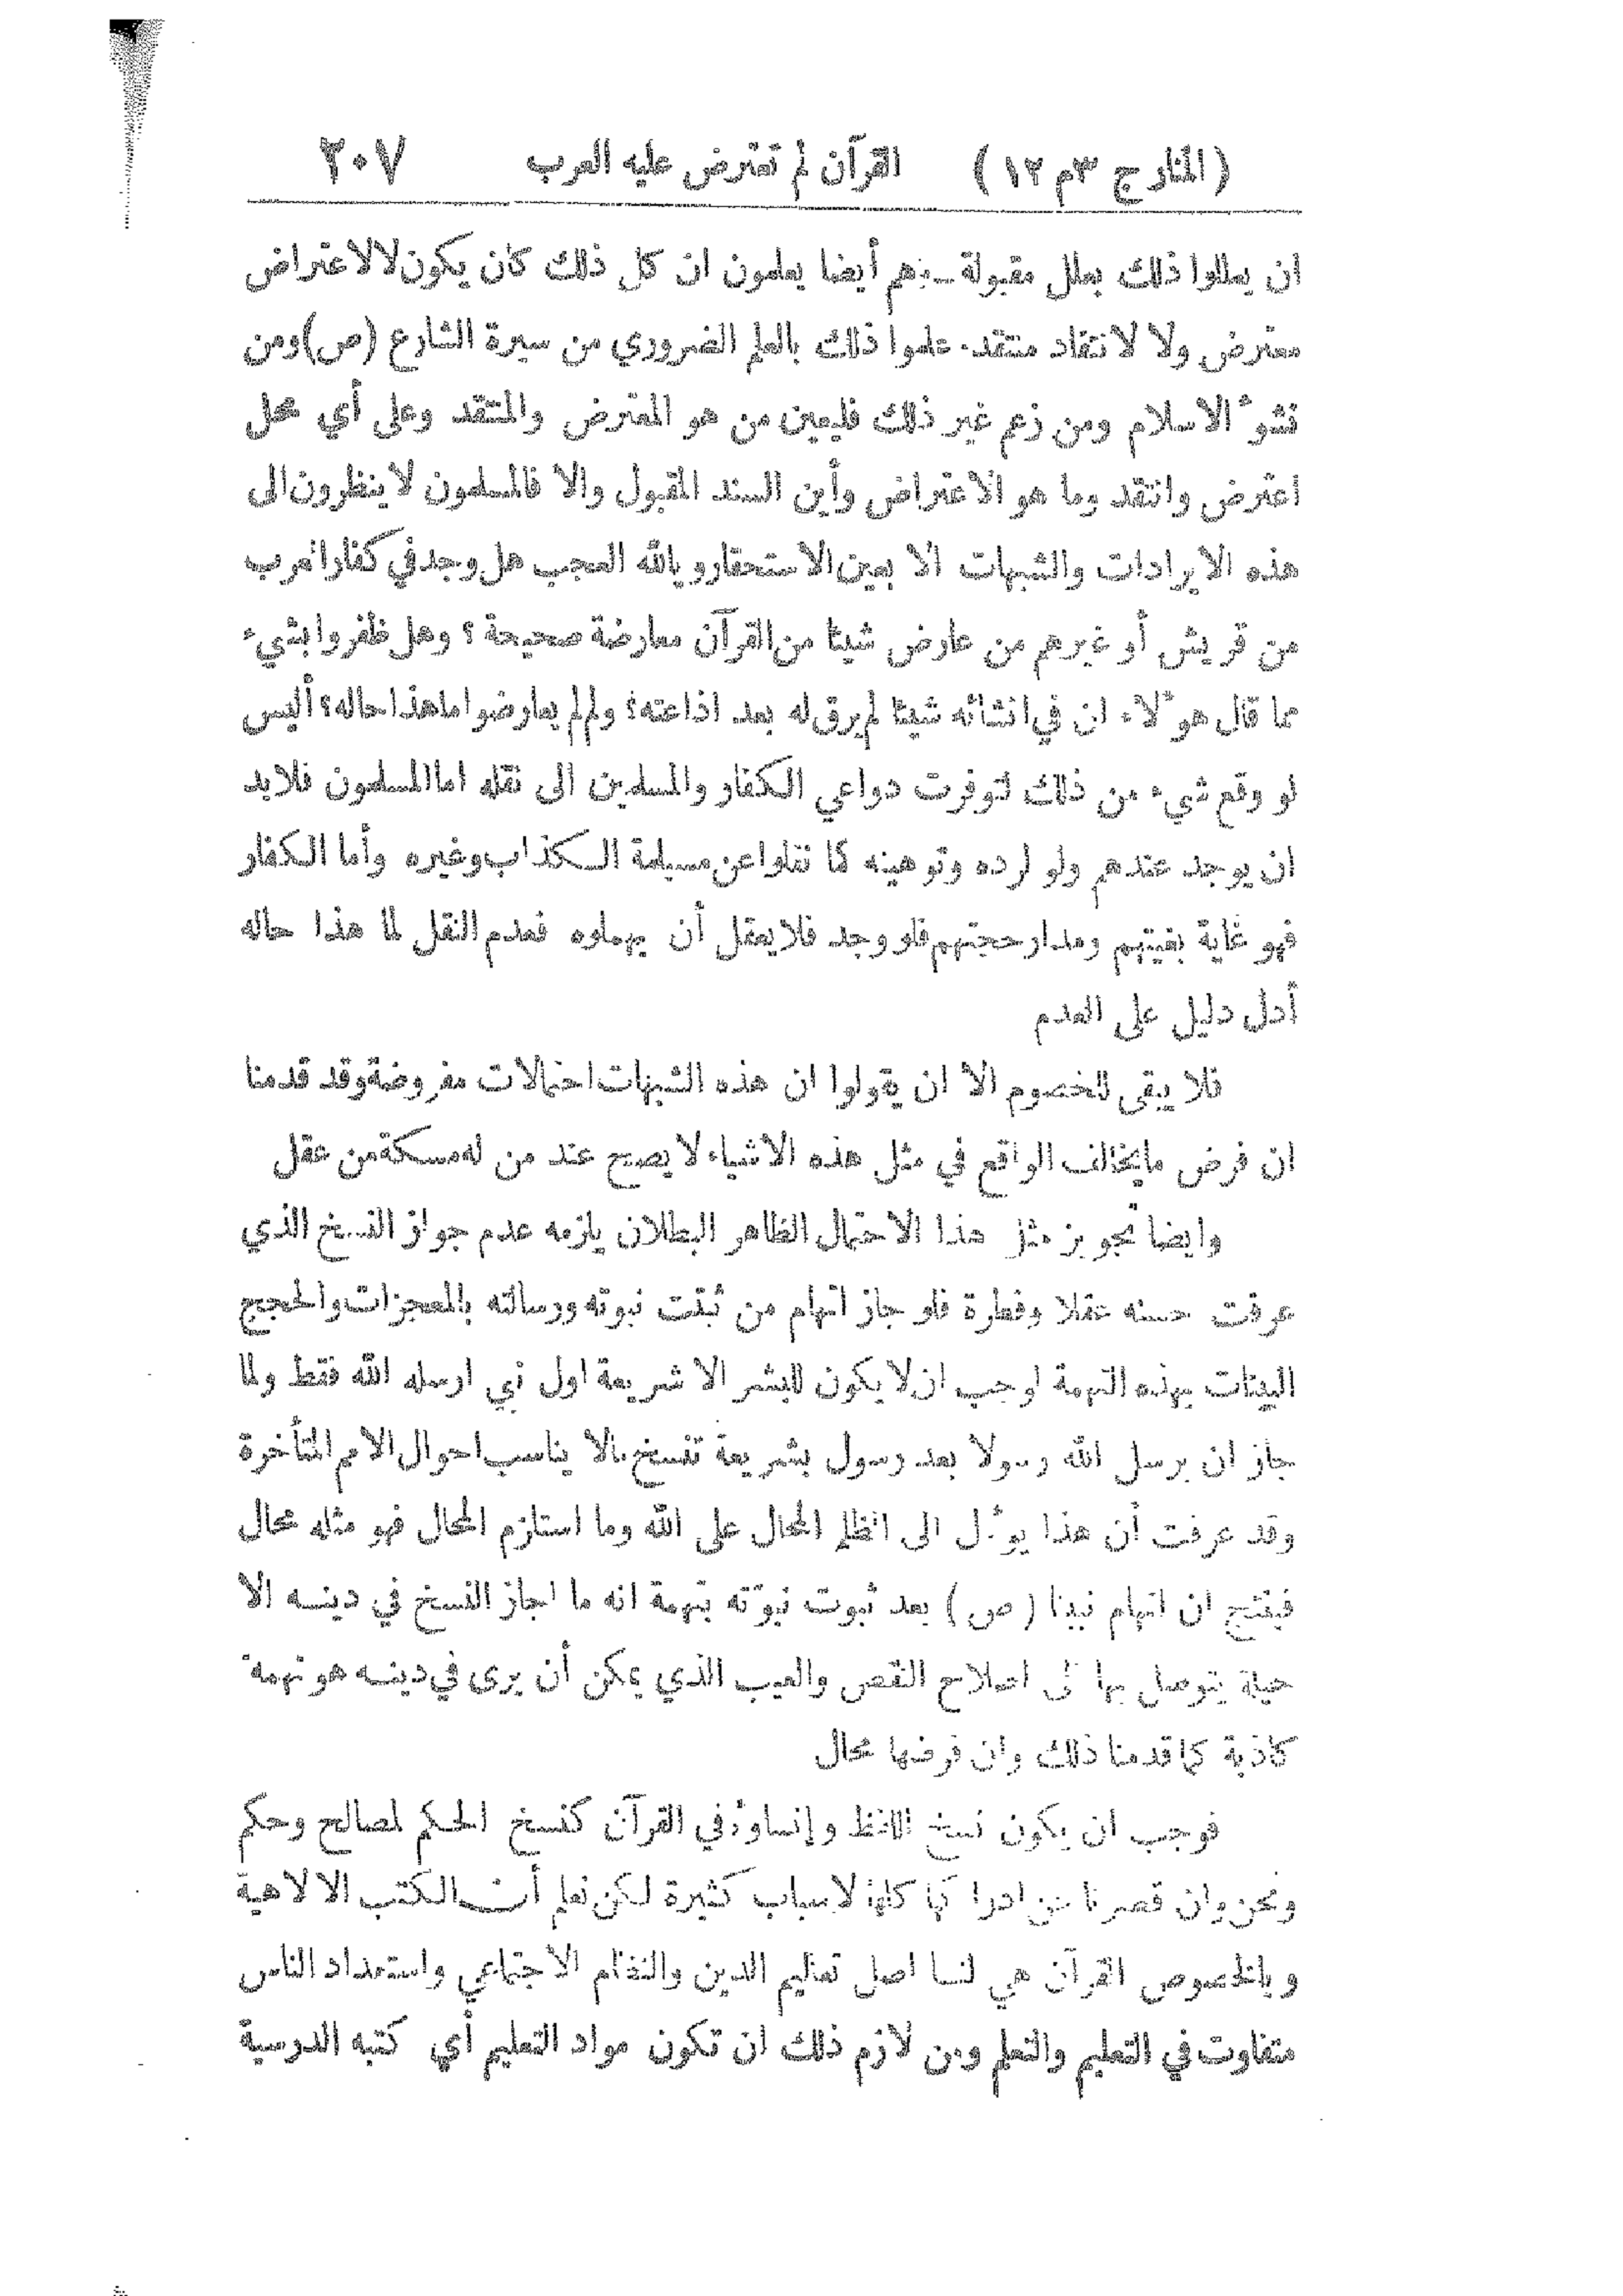 (المنار ج ٣ م ١٢) القرآن لم تعترض عليه العرب ٢٠٧
ان يعللوا ذلك بعلل مقبولة ــ وهم أيضا يعلمون ان كل ذلك كان يكون لا لاعتراض
معترض ولا لانتقاد منتقد. علموا ذلك بالعلم الضروري من سيرة الشارع (ص) ومن
نشوء الاسلام ومن زعم غير ذلك فليعين من هو المعترض والمنتقد وعلى أي محل
اعترض وانتقد وما هو الاعتراض وأين السند المقبول والا فالمسلمون لا ينظرون الى
هذه الايرادات والشبهات الا بعين الاستحقار ويالله العجب هل وجد في كفار العرب
من قريش أو غيرهم من عارض شيئا من القرآن معارضة صحيحة ؟ وهل ظفروا بشيء
مما قال هؤلاء ان في انشائه شيئا لم يرق له بعد اذاعته؟ ولم لم يعارضوا ما هذا حاله؟ أليس
لو وقع شيء من ذلك لتوفرت دواعي الكفار والمسلمين الى نقله اما المسلمون فلا بد
ان يوجد عندهم ولو لرده وتوهينه كما نقلوا عن مسيلمة الكذاب وغيره وأما الكفار
فهو غاية بغيتهم ومدار حجتهم فلو وجد فلا يعقل أن يهملوه فعدم النقل لما هذا حاله
أدل دليل على العدم
فلا يبقى للخصوم الا ان يقولوا ان هذه الشبهات احتمالات مفروضة وقد قدمنا
ان فرض ما يخالف الواقع في مثل هذه الاشياء لا يصح عند من له مسكة من عقل
وايضا تجويز مثل هذا الاحتمال الظاهر البطلان يلزمه عدم جواز النسخ الذي
عرفت حسنه عقلا وفطرة فلو جاز اتهام من ثبتت نبوته ورسالته بالمعجزات والحجج
البينات بهذه التهمة لوجب ان لا يكون للبشر الا شريعة اول نبي ارسله الله فقط ولما
جاز ان يرسل الله رسولا بعد رسول بشريعة تنسخ مالا يناسب احوال الامم المتأخرة
وقد عرفت أن هذا يؤل الى الظلم المحال على الله وما استلزم المحال فهو مثله محال
فينتج ان اتهام نبينا (ص) بعد ثبوت نبوته بتهمة انه ما اجاز النسخ في دينه الا
حيلة يتوصل بها الى اصلاح النقص والعيب الذي يمكن أن يرى في دينه هو تهمة
كاذبة كما قدمنا ذلك وان فرضها محال
فوجب ان يكون نسخ اللفظ وإنساؤه في القرآن كنسخ الحكم لمصالح وحكم
ونحن وان قصرنا عن ادراكها كلها لاسباب كثيرة لكن نعلم أن الكتب الالاهية
وبالخصوص القرآن هي لنا اصل تعاليم الدين والنظام الاجتماعي واستعداد الناس
متفاوت في التعليم والتعلم ومن لازم ذلك ان تكون مواد التعليم أي كتبه الدرسية